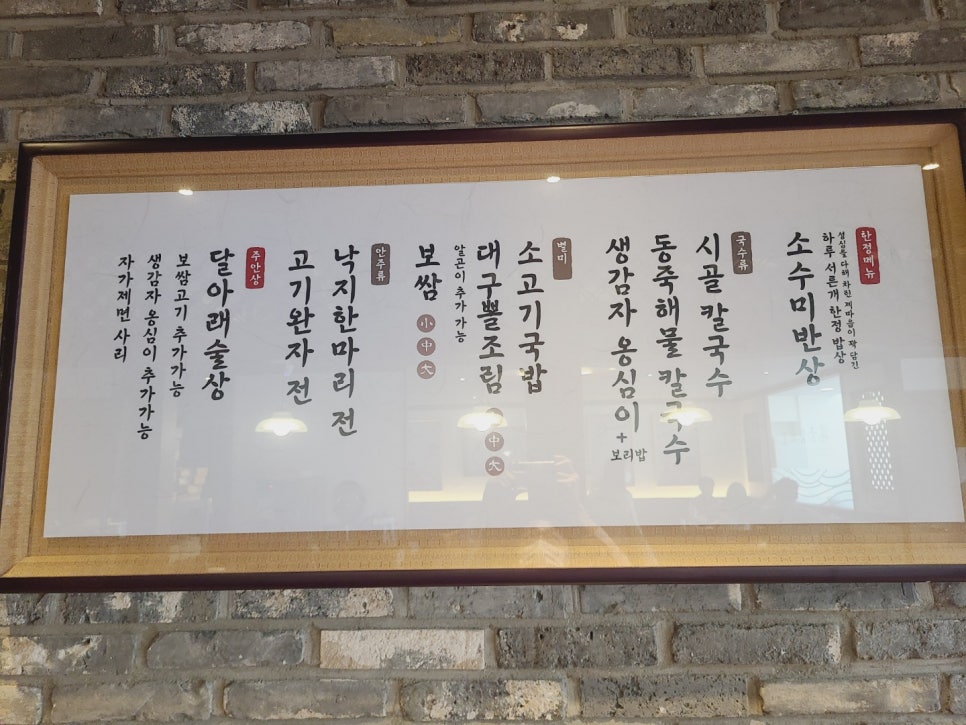 한정메뉴
정성을 다해 차린 제마음이 꽉 담긴
하루 서른개 한정 밥상
소수미반상
국수류
시골 칼국수
동죽해물 칼국수
생감자 옹심이
+
보리밥
별미
소고기국밥
대구뽈조림 中 大
알곤이 추가 가능
보쌈 小 中 大
안주류
낙지한마리 전
고기완자 전
주안상
달아래술상
보쌈고기 추가가능
생감자 옹심이 추가가능
자가제면 사리